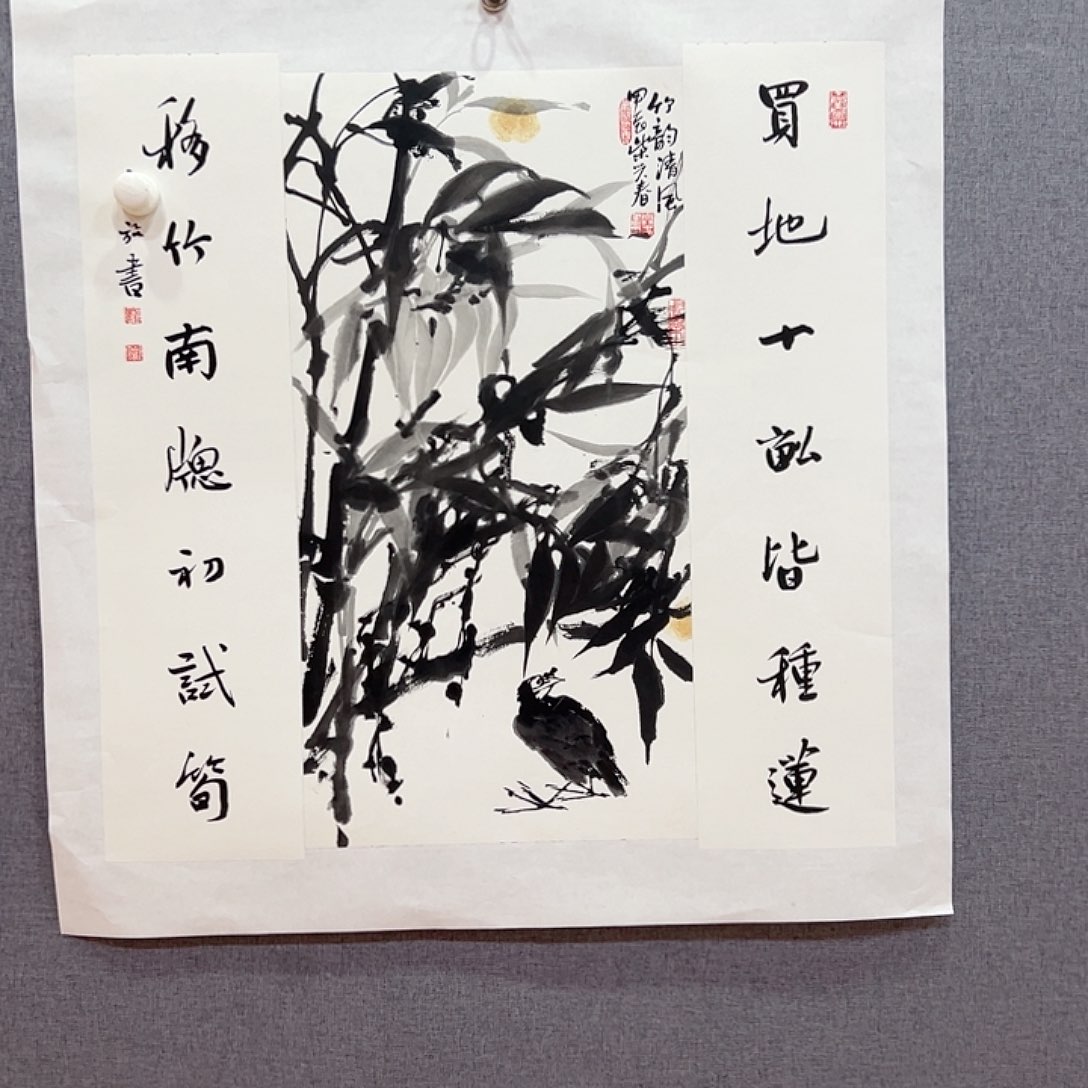 買地十畝皆種蓮
竹韵清风
甲辰柴天春
移竹南牎初試筍
放書